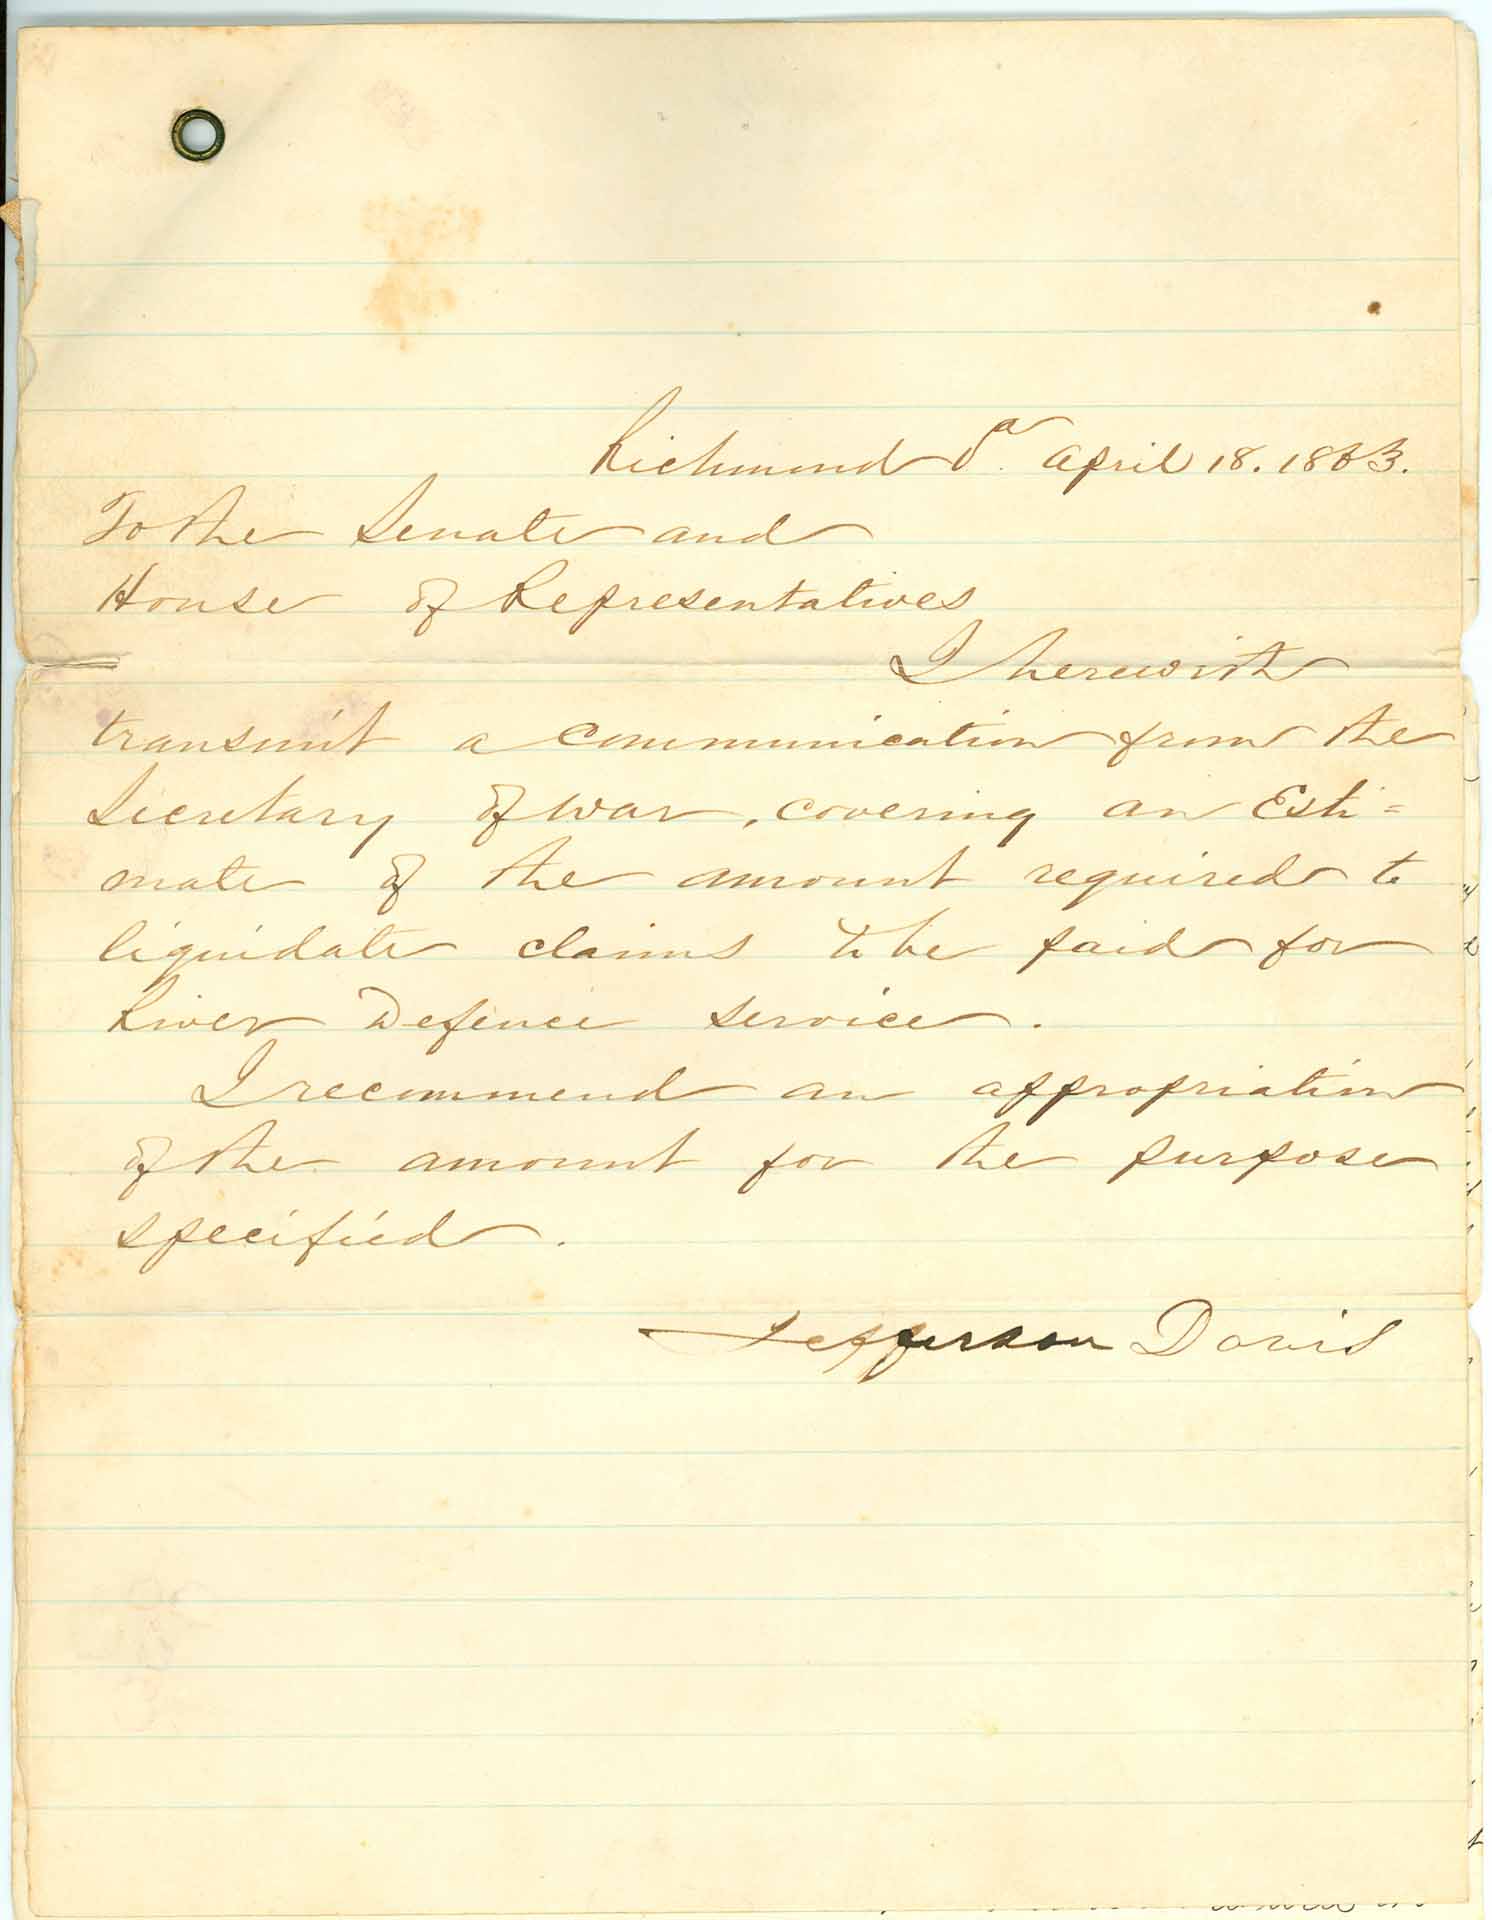 Richmond Va. April 18. 1863.
To the Senate and
House of Representatives
I herewith
transmit a communication from the
Secretary of War, covering an Esti=
mate of the amount required to
liquidate claims to be paid for
River Defence service.
I recommend an appropriation
of the amount for the purpose
specified.
Jefferson Davis